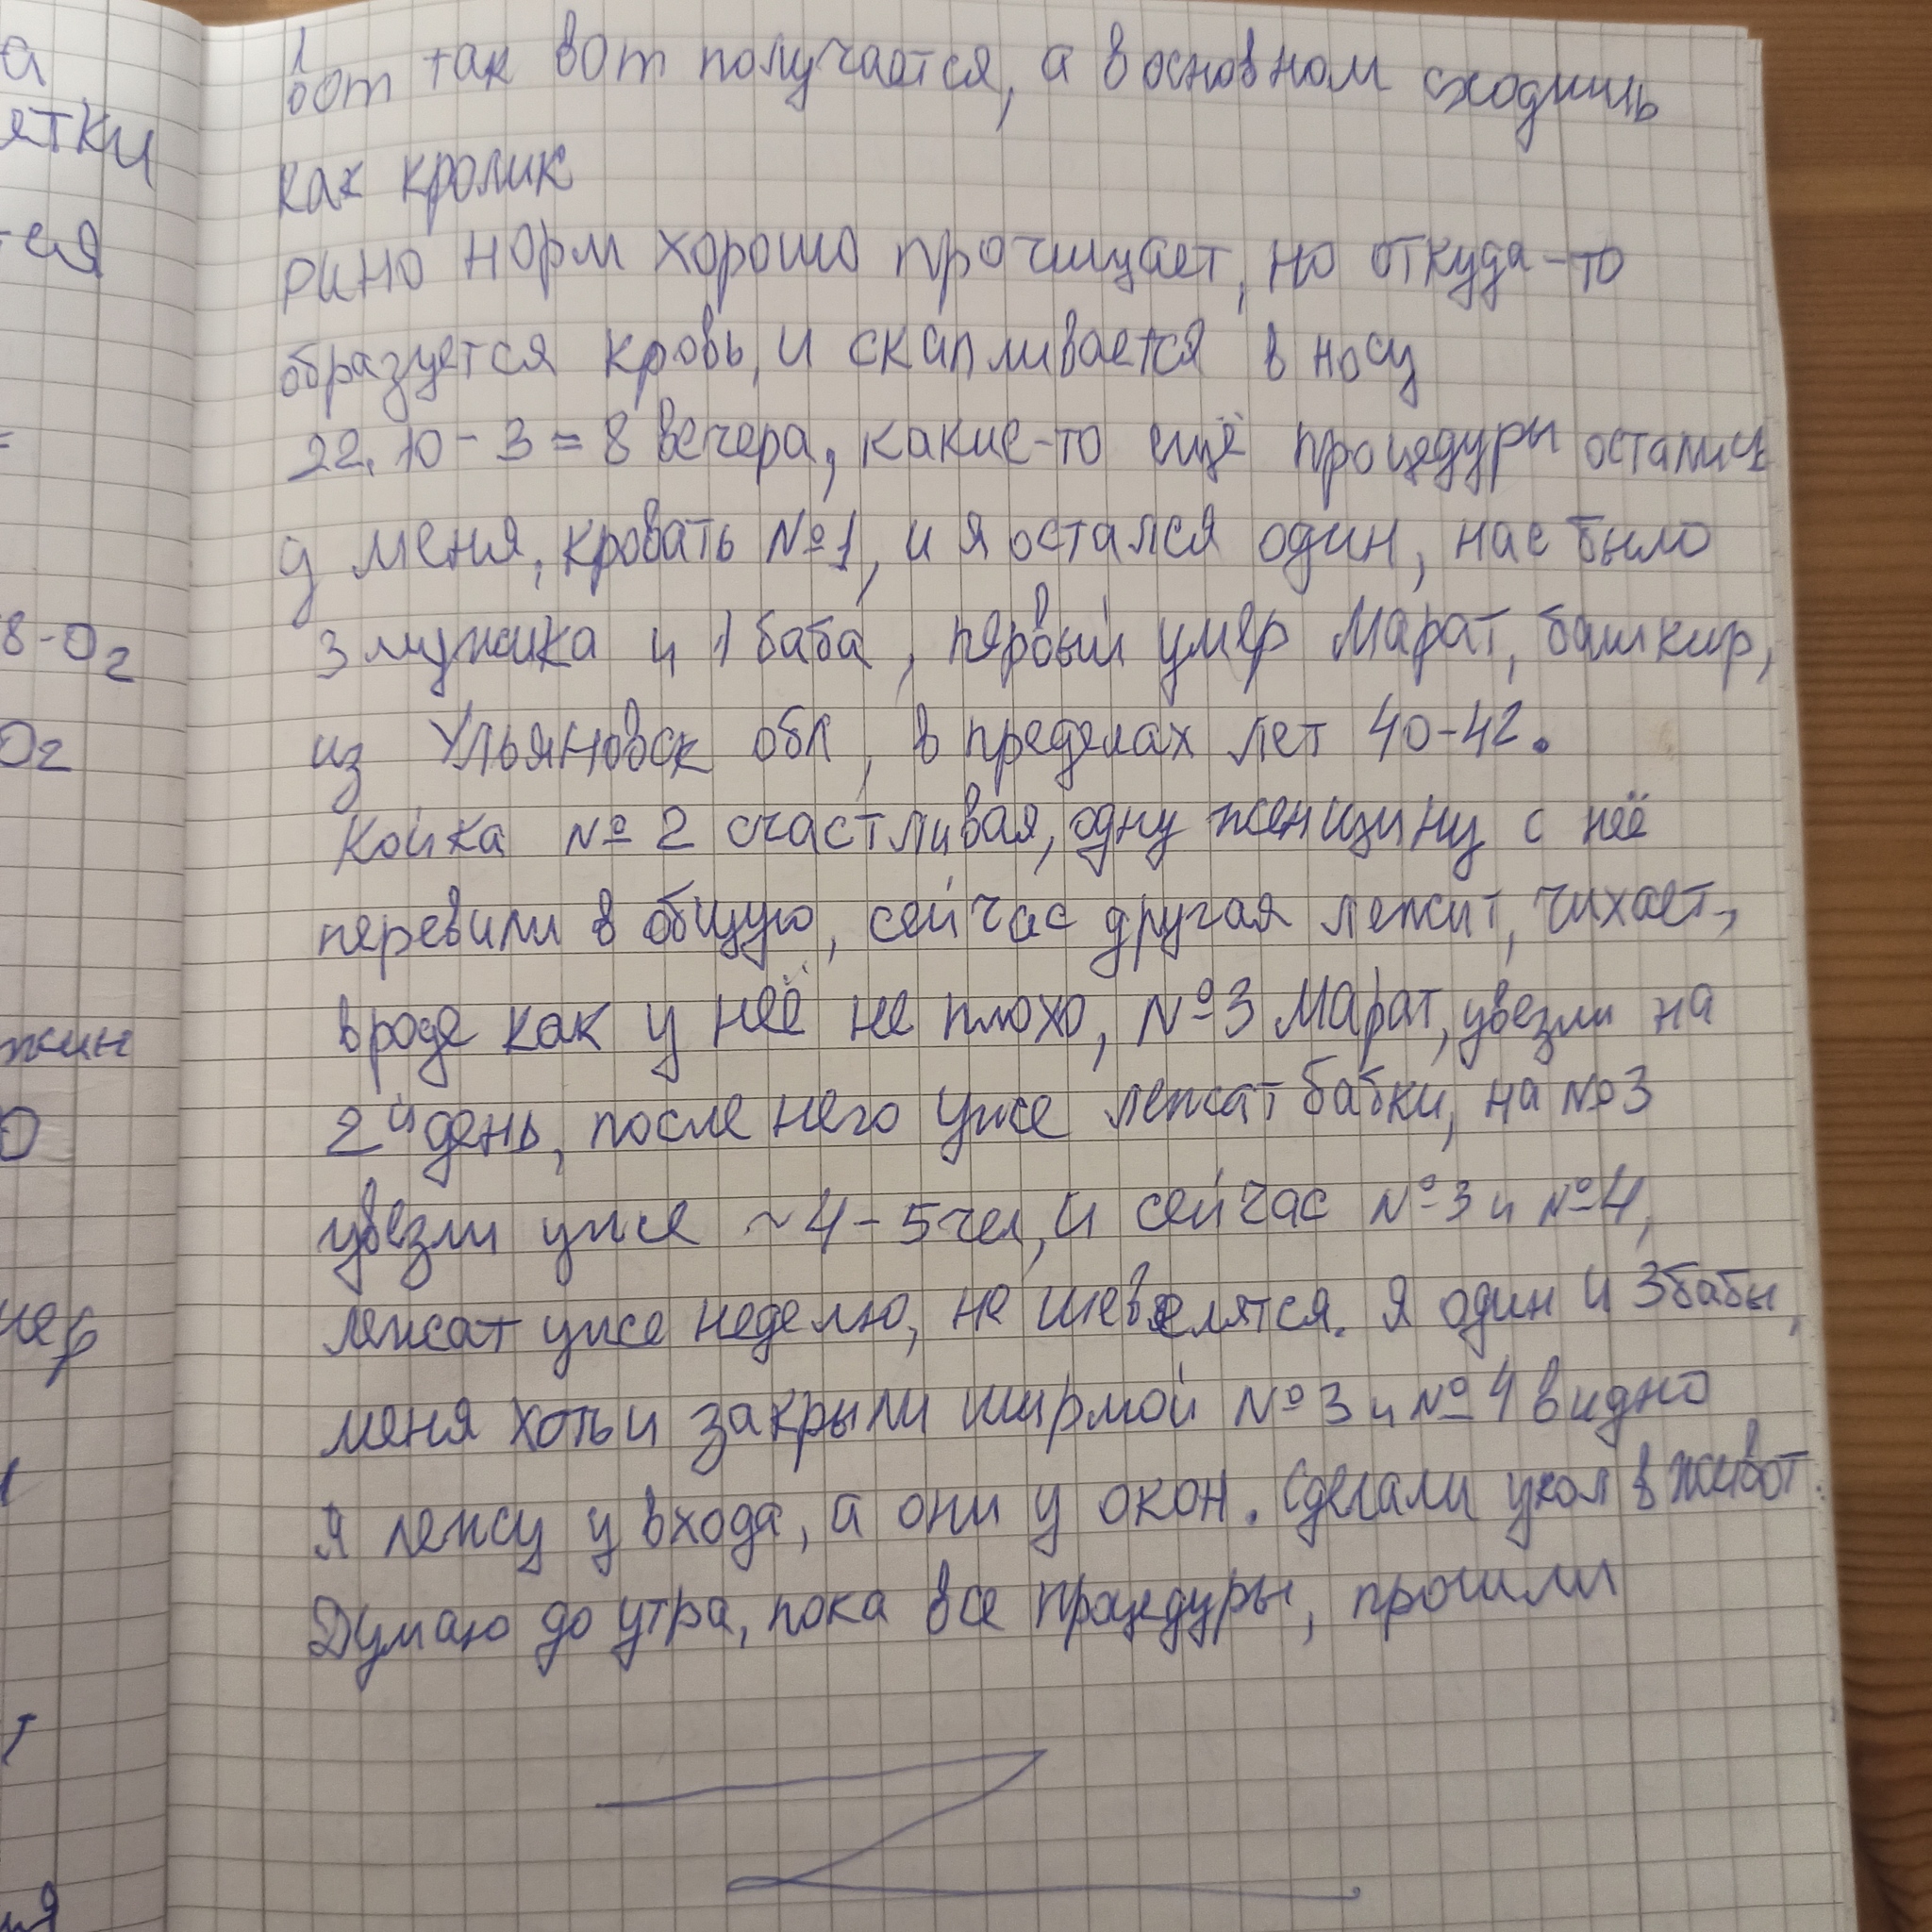 а
ятки
тся
=
8-О2
О2
жин
О
чер
1
т
ия
вот так вот получается, а в основном сходишь
как кролик
рино норм хорошо прочищает, но откуда-то
образуется кровь, и скапливается в носу
22.10-3=8 вечера, какие-то ещё процедуры остались
у меня, кровать №1, и я остался один, нас было
3 мужика и 1 баба, первый умер Марат, башкир,
из Ульяновск обл, в пределах лет 40-42.
Койка №2 счастливая, одну женщину с неё
перевили в общую, сейчас другая лежит, чихает,
вроде как у неё не плохо, №3 Марат, увезли на
2й день, после него уже лежат бабки, на №3
увезли уже ~4-5 чел, и сейчас №3 и №4,
лежат уже неделю, не шевелятся. Я один и 3 бабы,
меня хоть и закрыли ширмой №3 и №4 видно
Я лежу у входа, а они у окон. Сделали укол в живот.
Думаю до утра, пока все процедуры, прошли